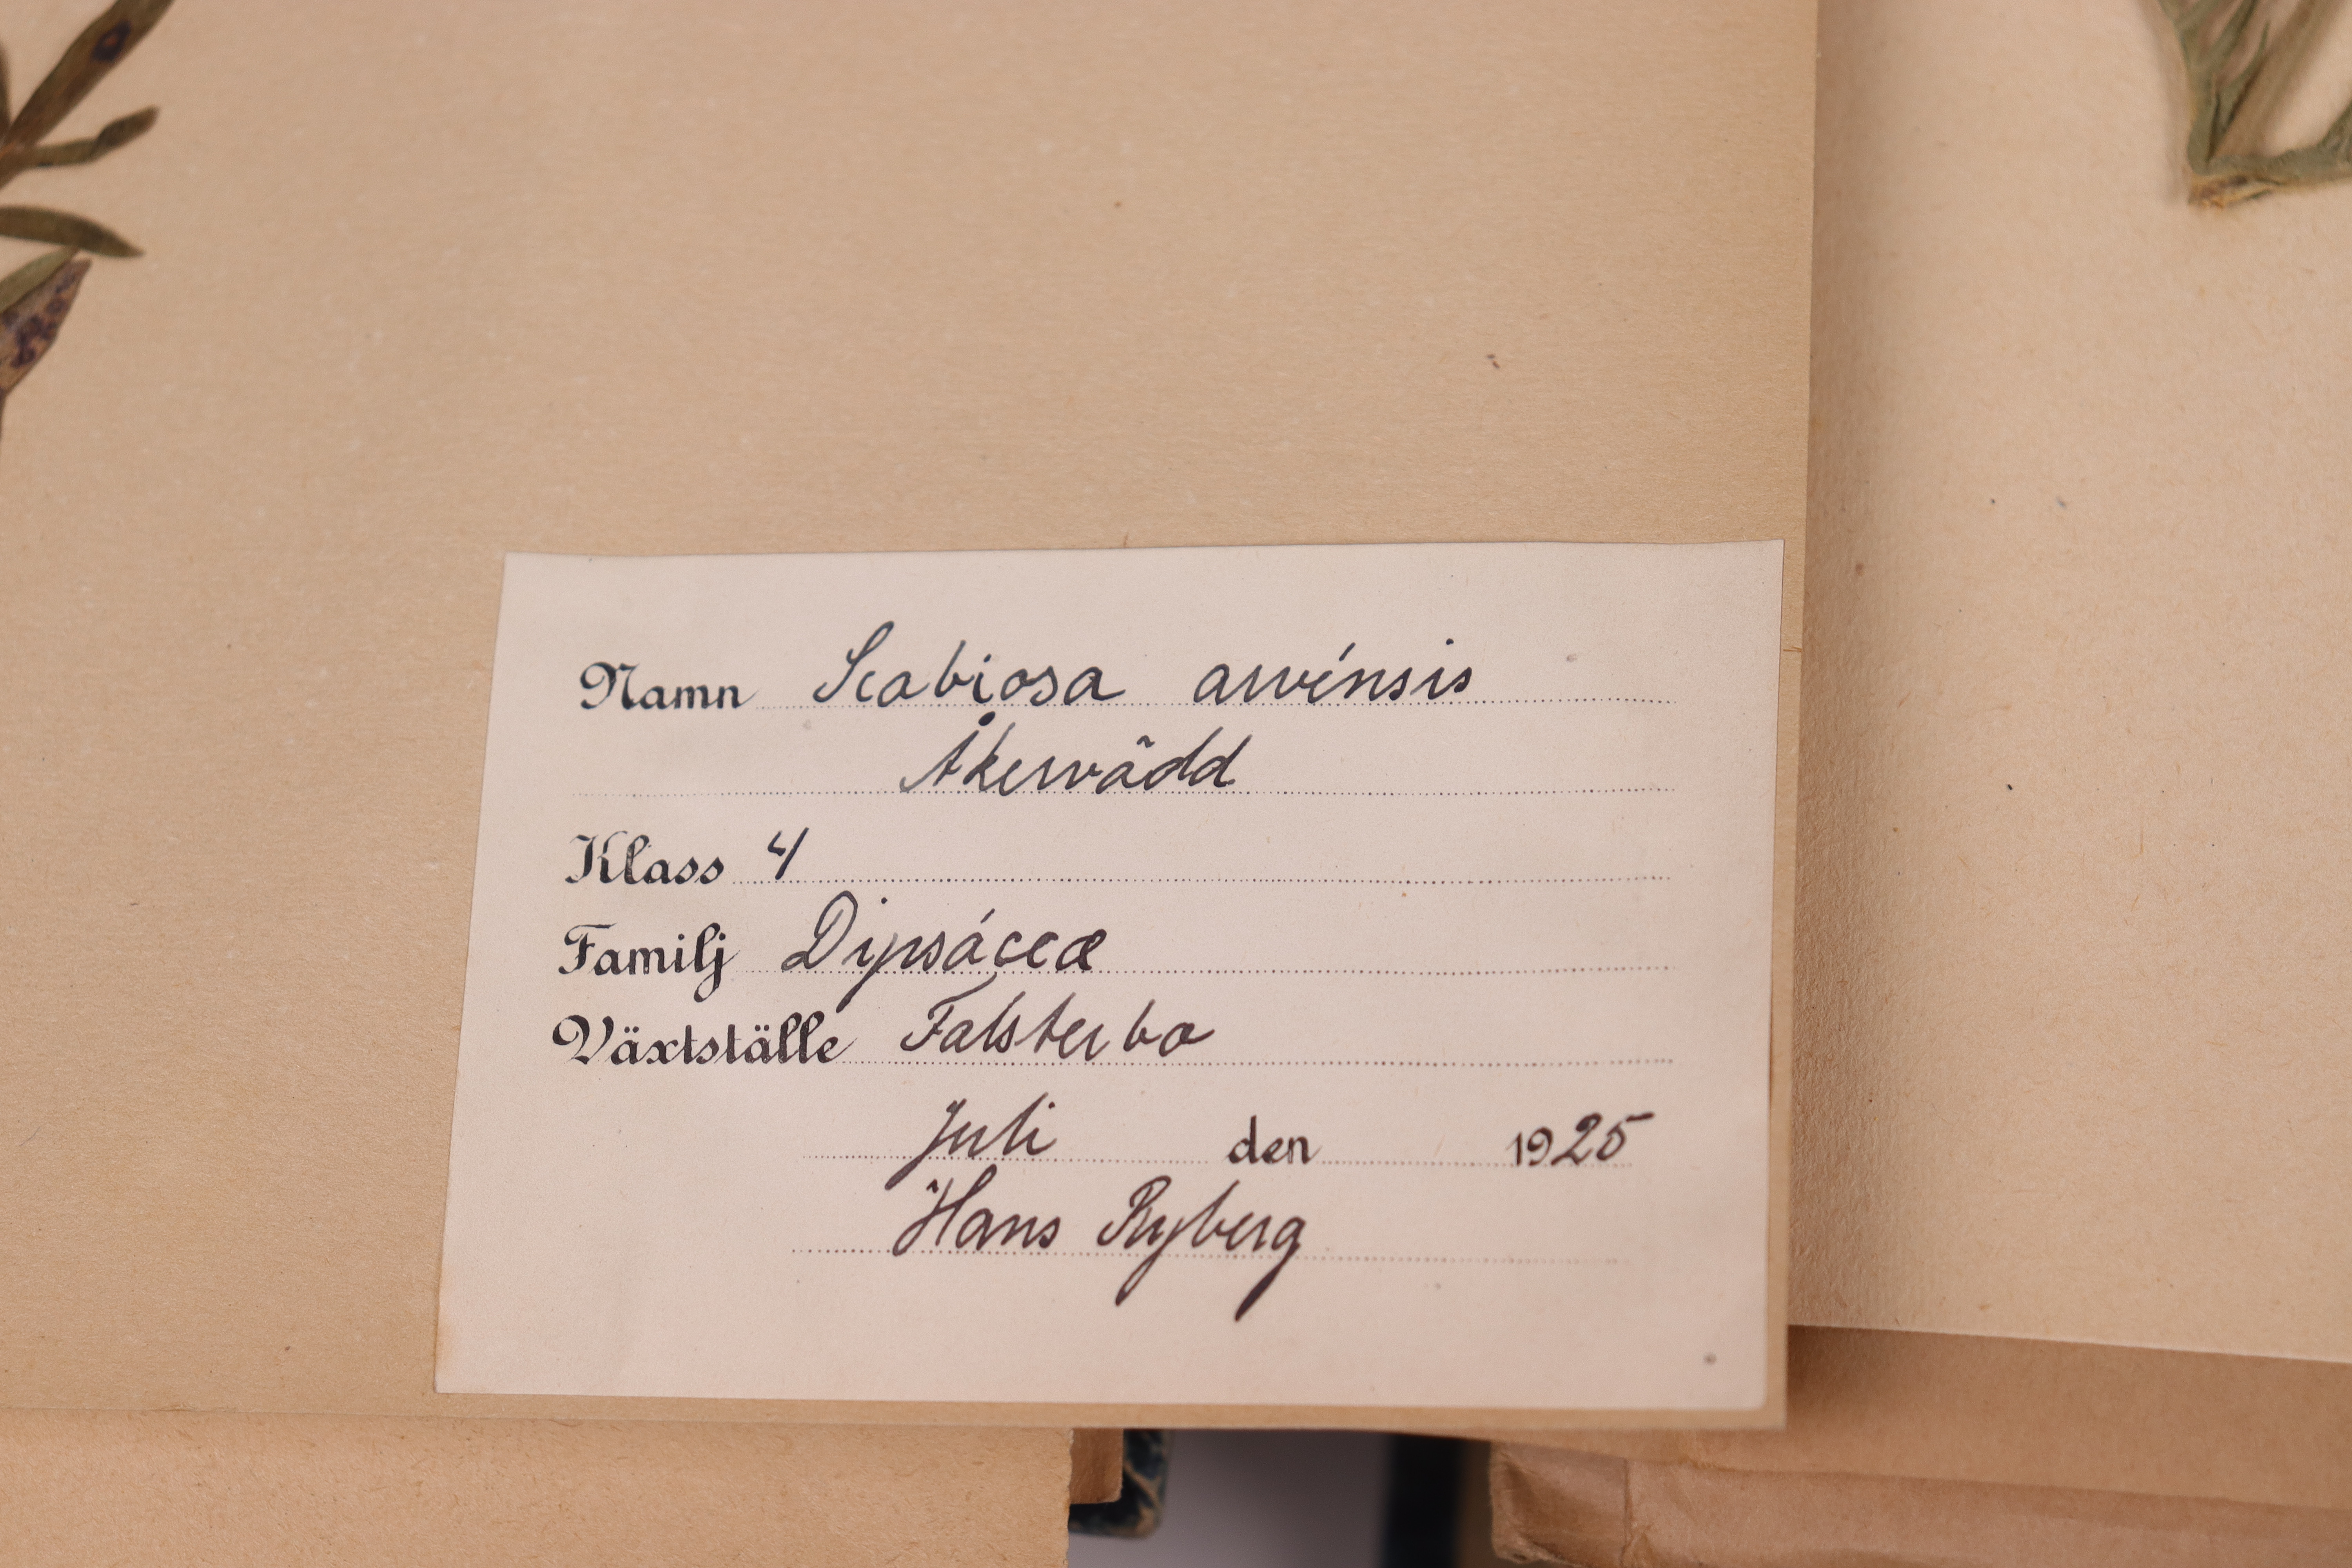 Namn Scabiosa arvénsis
Åkervädd
Klass 4
Familj Dipsáceæ
Växtställe Falsterbo
Juli den 1925
Hans Ryberg